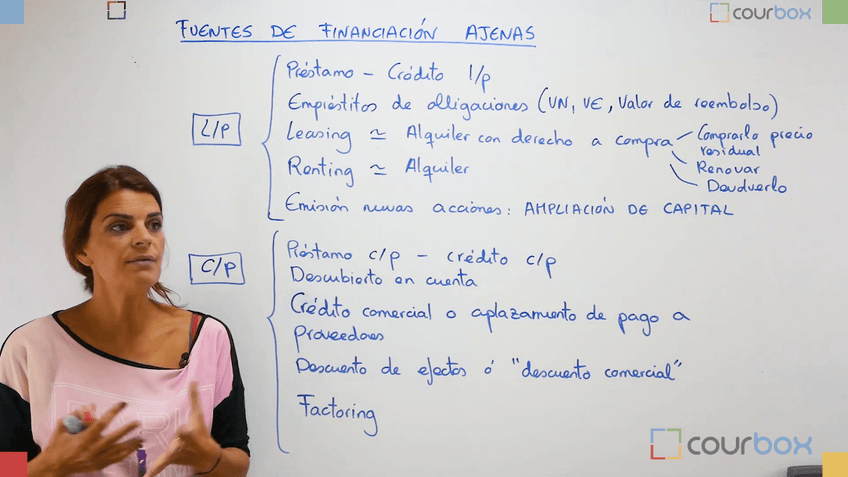 courbox
FUENTES DE FINANCIACIÓN AJENAS
L/P
Préstamo - Crédito l/p
Empréstitos de obligaciones (VN, VE, Valor de reembolso)
Leasing ≃ Alquiler con derecho a compra
Comprarlo precio
residual
Renovar
Devolverlo
Renting ≃ Alquiler
Emisión nuevas acciones: AMPLIACIÓN DE CAPITAL
C/P
Préstamo c/p - crédito c/p
Descubierto en cuenta
Crédito comercial o aplazamiento de pago a
proveedores
Descuento de efectos ó "descuento comercial"
Factoring
courbox